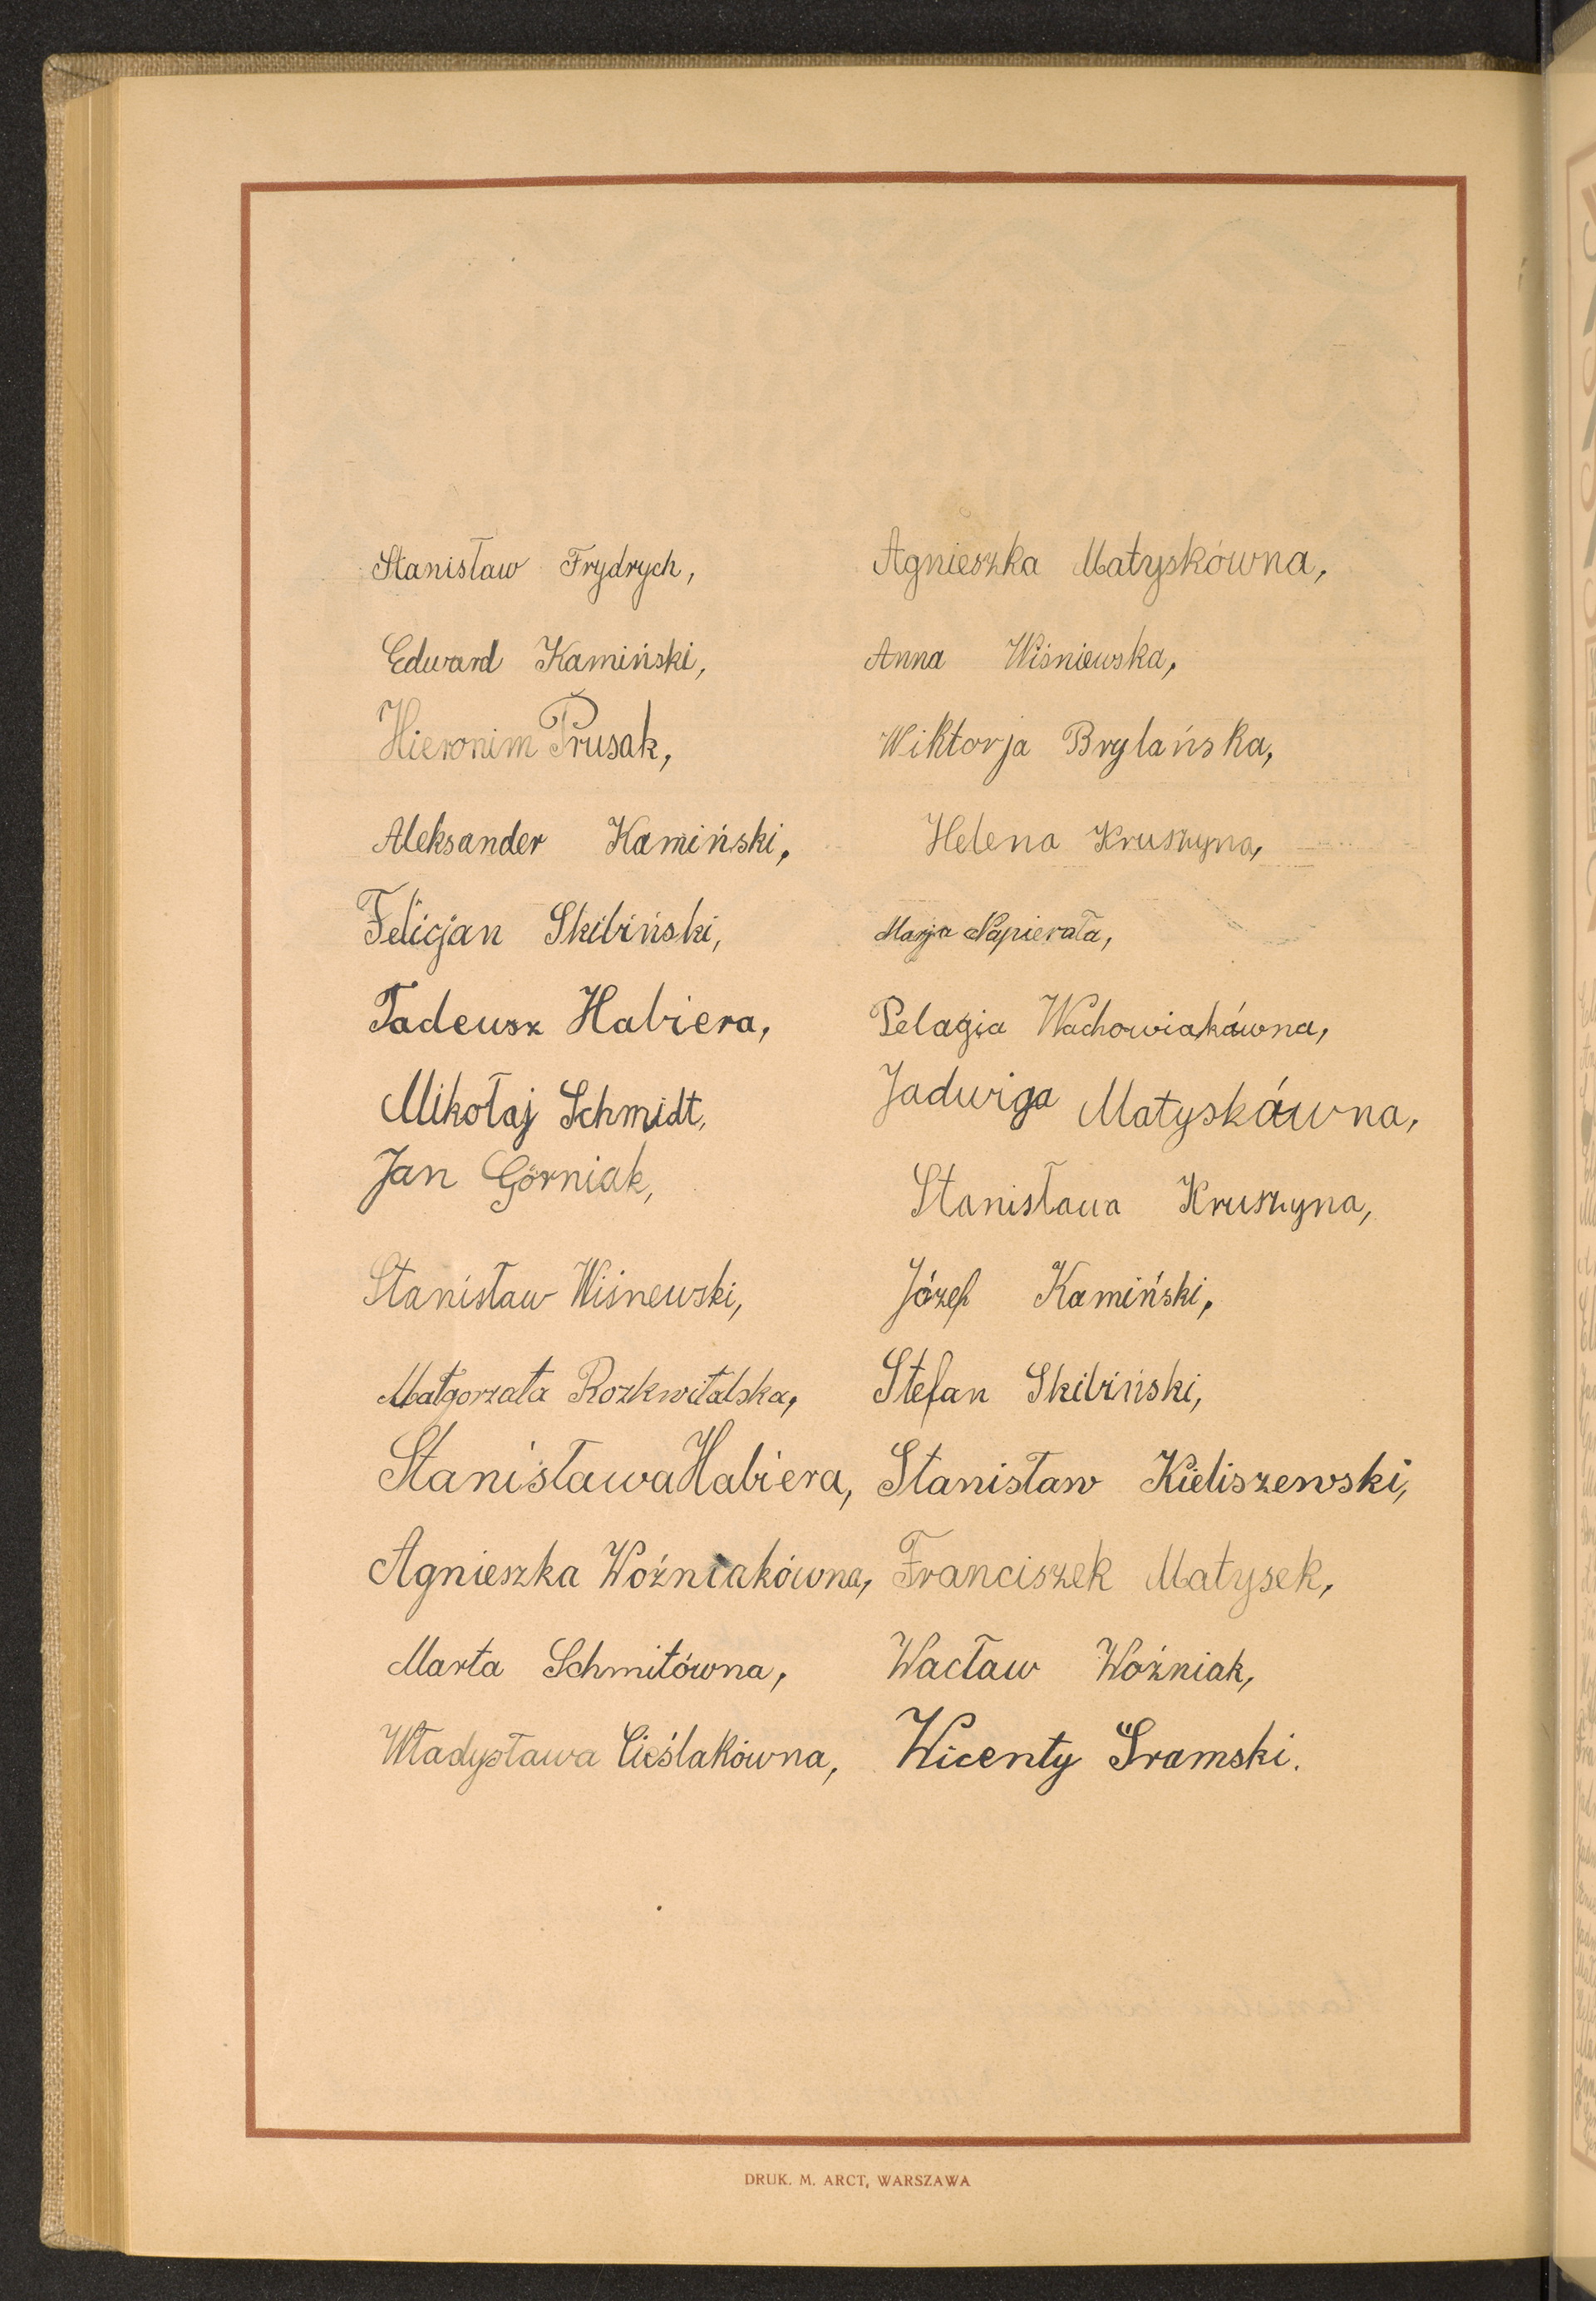 Stanisław Frydrych,
Edward Kamiński,
Hieronim Prusak,
Aleksander Kamiński,
Felicjan Skibiński,
Tadeusz Habiera,
Mikołaj Schmidt,
Jan Górniak,
Stanisław Wiśnewski,
Małgorzata Rozkwitalska,
Stanisława Habiera,
Agnieszka Woźniakówna,
Marta Schmitówna,
Władysława Cieślakówna,
Agnieszka Matyskówna,
Anna Wiśniewska,
Wiktorja Brylańska,
Helena Kruszyna,
Marja Napierała,
Pelagia Wachowiakówna,
Jadwiga Matyskówna,
Stanisława Kruszyna,
Józef Kamiński,
Stefan Skibiński,
Stanisław Kieliszewski,
Franciszek Matysek,
Wacław Woźniak,
Wicenty Sramski.
DRUK. M. ARCT, WARSZAWA